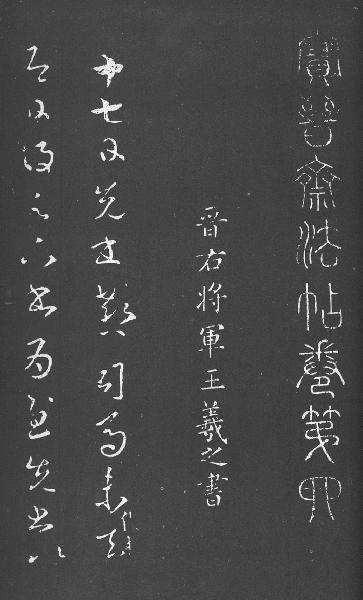 寶晉齋法帖卷第四
晉右將軍王羲之書
十七日先書郗司馬未去
即日得足下書為慰先書以